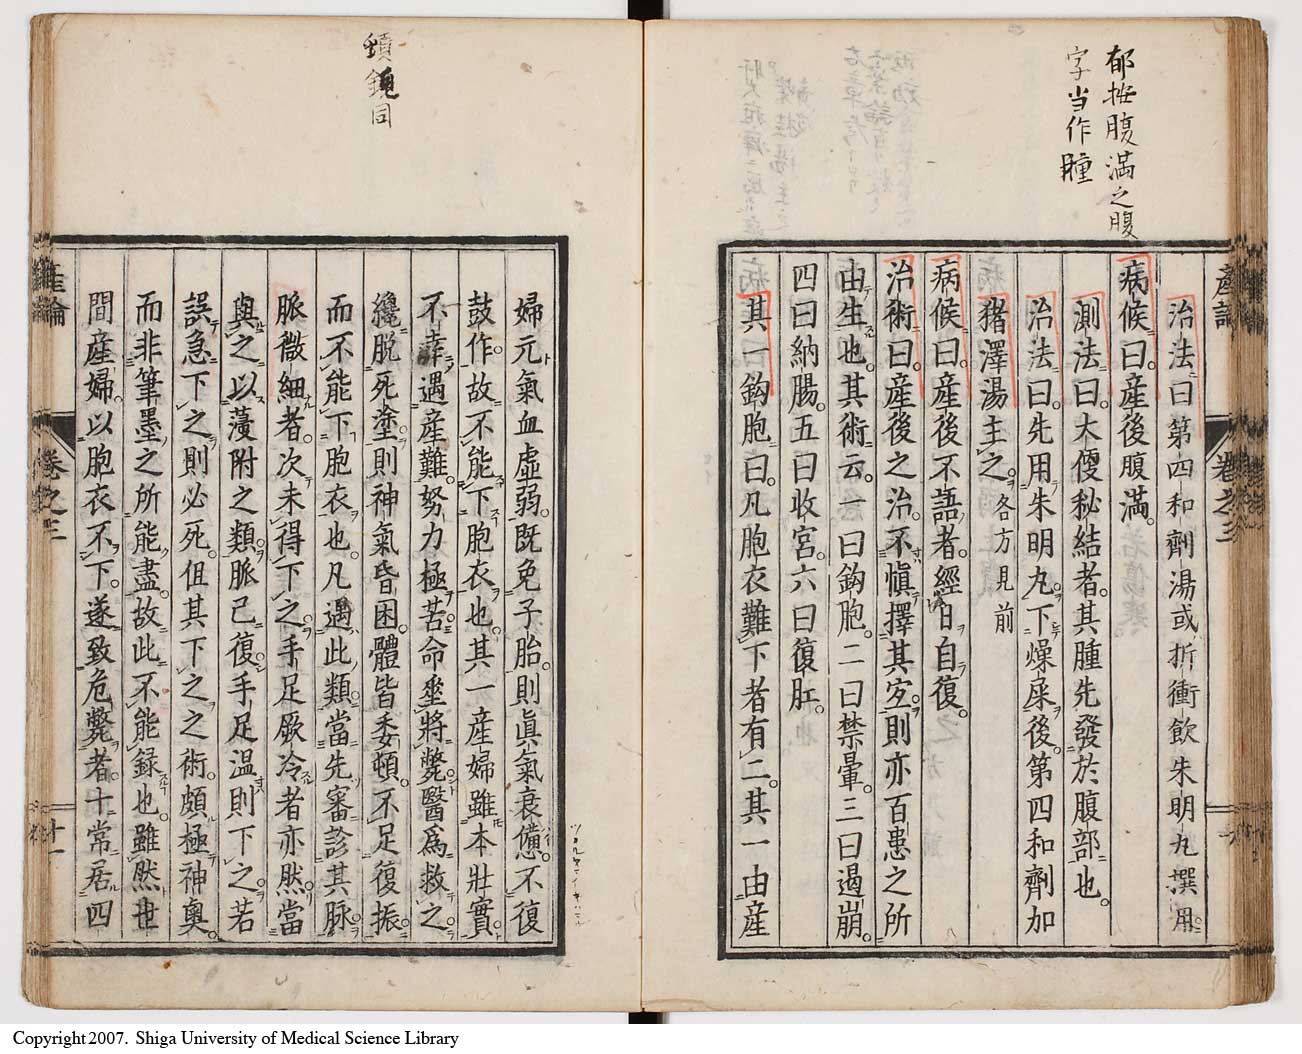 郁按腹滿之腹
字当作腫
産論
卷之三
治法曰第四和劑湯或折衝飲朱明丸撰用
病候曰産後腹滿
測法曰大便秘結者其腫先發於腹部也
治法曰先用朱明丸下燥屎後第四和劑加
猪澤湯主之各方見前
病候曰産後不語者經日自復
治術曰産後之治不愼擇其宜則亦百患之所
由生也其術云一曰鈎胞二曰禁暈三曰遏崩
四曰納腸五曰收宮六曰復肛
其一鈎胞曰凡胞衣難下者有二其一由産
同
婦元氣血虛弱既免子胎則眞氣衰憊不復
鼓作故不能下胞衣也其一産婦雖本壯實
不幸遇産難努力極苦命垂將斃醫爲救之
纔脱死塗則神氣昏困體皆委頓不足復振
而不能下胞衣也凡遇此類當先審診其脉
脈微細者次未得下之手足厥冷者亦然當
與之以蔆附之類脈已復手足温則下之若
誤急下之則必死但其下之之術頗極神奧
而非筆墨之所能盡故此不能録也雖然世
間産婦以胞衣不下遂致危斃者十常居四
産論
卷之三
十一
Copyright 2007. Shiga University of Medical Science Library